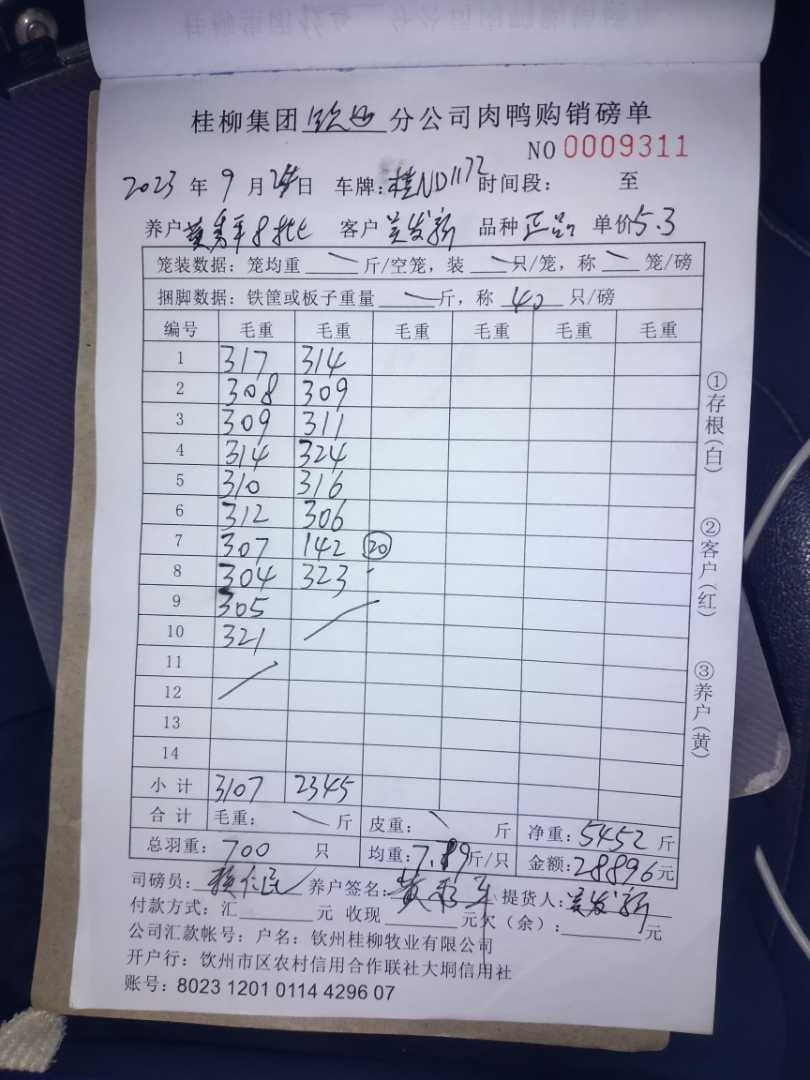 桂柳集团 钦州 分公司肉鸭购销磅单
NO 0009311
2023 年 9 月 24 日 车牌:桂ND1172 时间段: 至
养户 黄 8批 客户 吴发新 品种 正品 单价 5.3
笼装数据:笼均重 \ 斤/空笼,装 \ 只/笼,称 \ 笼/磅
捆脚数据:铁筐或板子重量 \ 斤,称 40 只/磅
编号 毛重 毛重 毛重 毛重 毛重 毛重
1 317 314
2 308 309
3 309 311
4 314 324
5 310 316
6 312 306
7 307 142 20
8 304 323
9 305
10 321
11
12
13
14
小计 3107 2345
合计 毛重: \ 斤 皮重: \ 斤 净重:5452 斤
总羽重:700 只 均重:7.79 斤/只 金额:28896元
司磅员: 养户签名: 提货人:吴发新
付款方式:汇 元 收现 元欠(余): 元
公司汇款帐号:户名:钦州桂柳牧业有限公司
开户行:钦州市区农村信用合作联社大垌信用社
账号:8023 1201 0114 4296 07
①存根(白)
②客户(红)
③养户(黄)